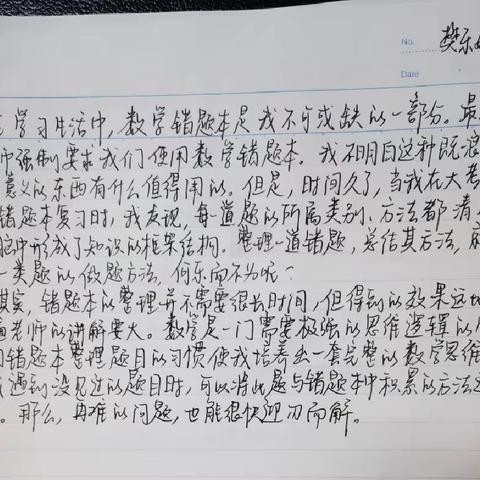 No. 樊乐
Date
学习生活中,数学错题本是我不可或缺的一部分。最
强制要求我们使用数学错题本。我不明白这种既浪
意义的东西有什么值得用的。但是,时间久了,当我在大考
错题本复习时,我发现,每一道题的所属类别、方法都清
脑中形成了知识的框架结构。整理一道错题,总结其方法,
一类题的做题方法,何乐而不为呢?
其实,错题本的整理并不需要很长时间,但得到的效果远
老师的讲解要大。数学是一门需要极强的思维逻辑的
错题本整理题目的习惯使我培养出一套完整的数学思维
遇到没见过的题目时,可以将此题与错题本中积累的方法
。那么,再难的问题,也能很快迎刃而解。